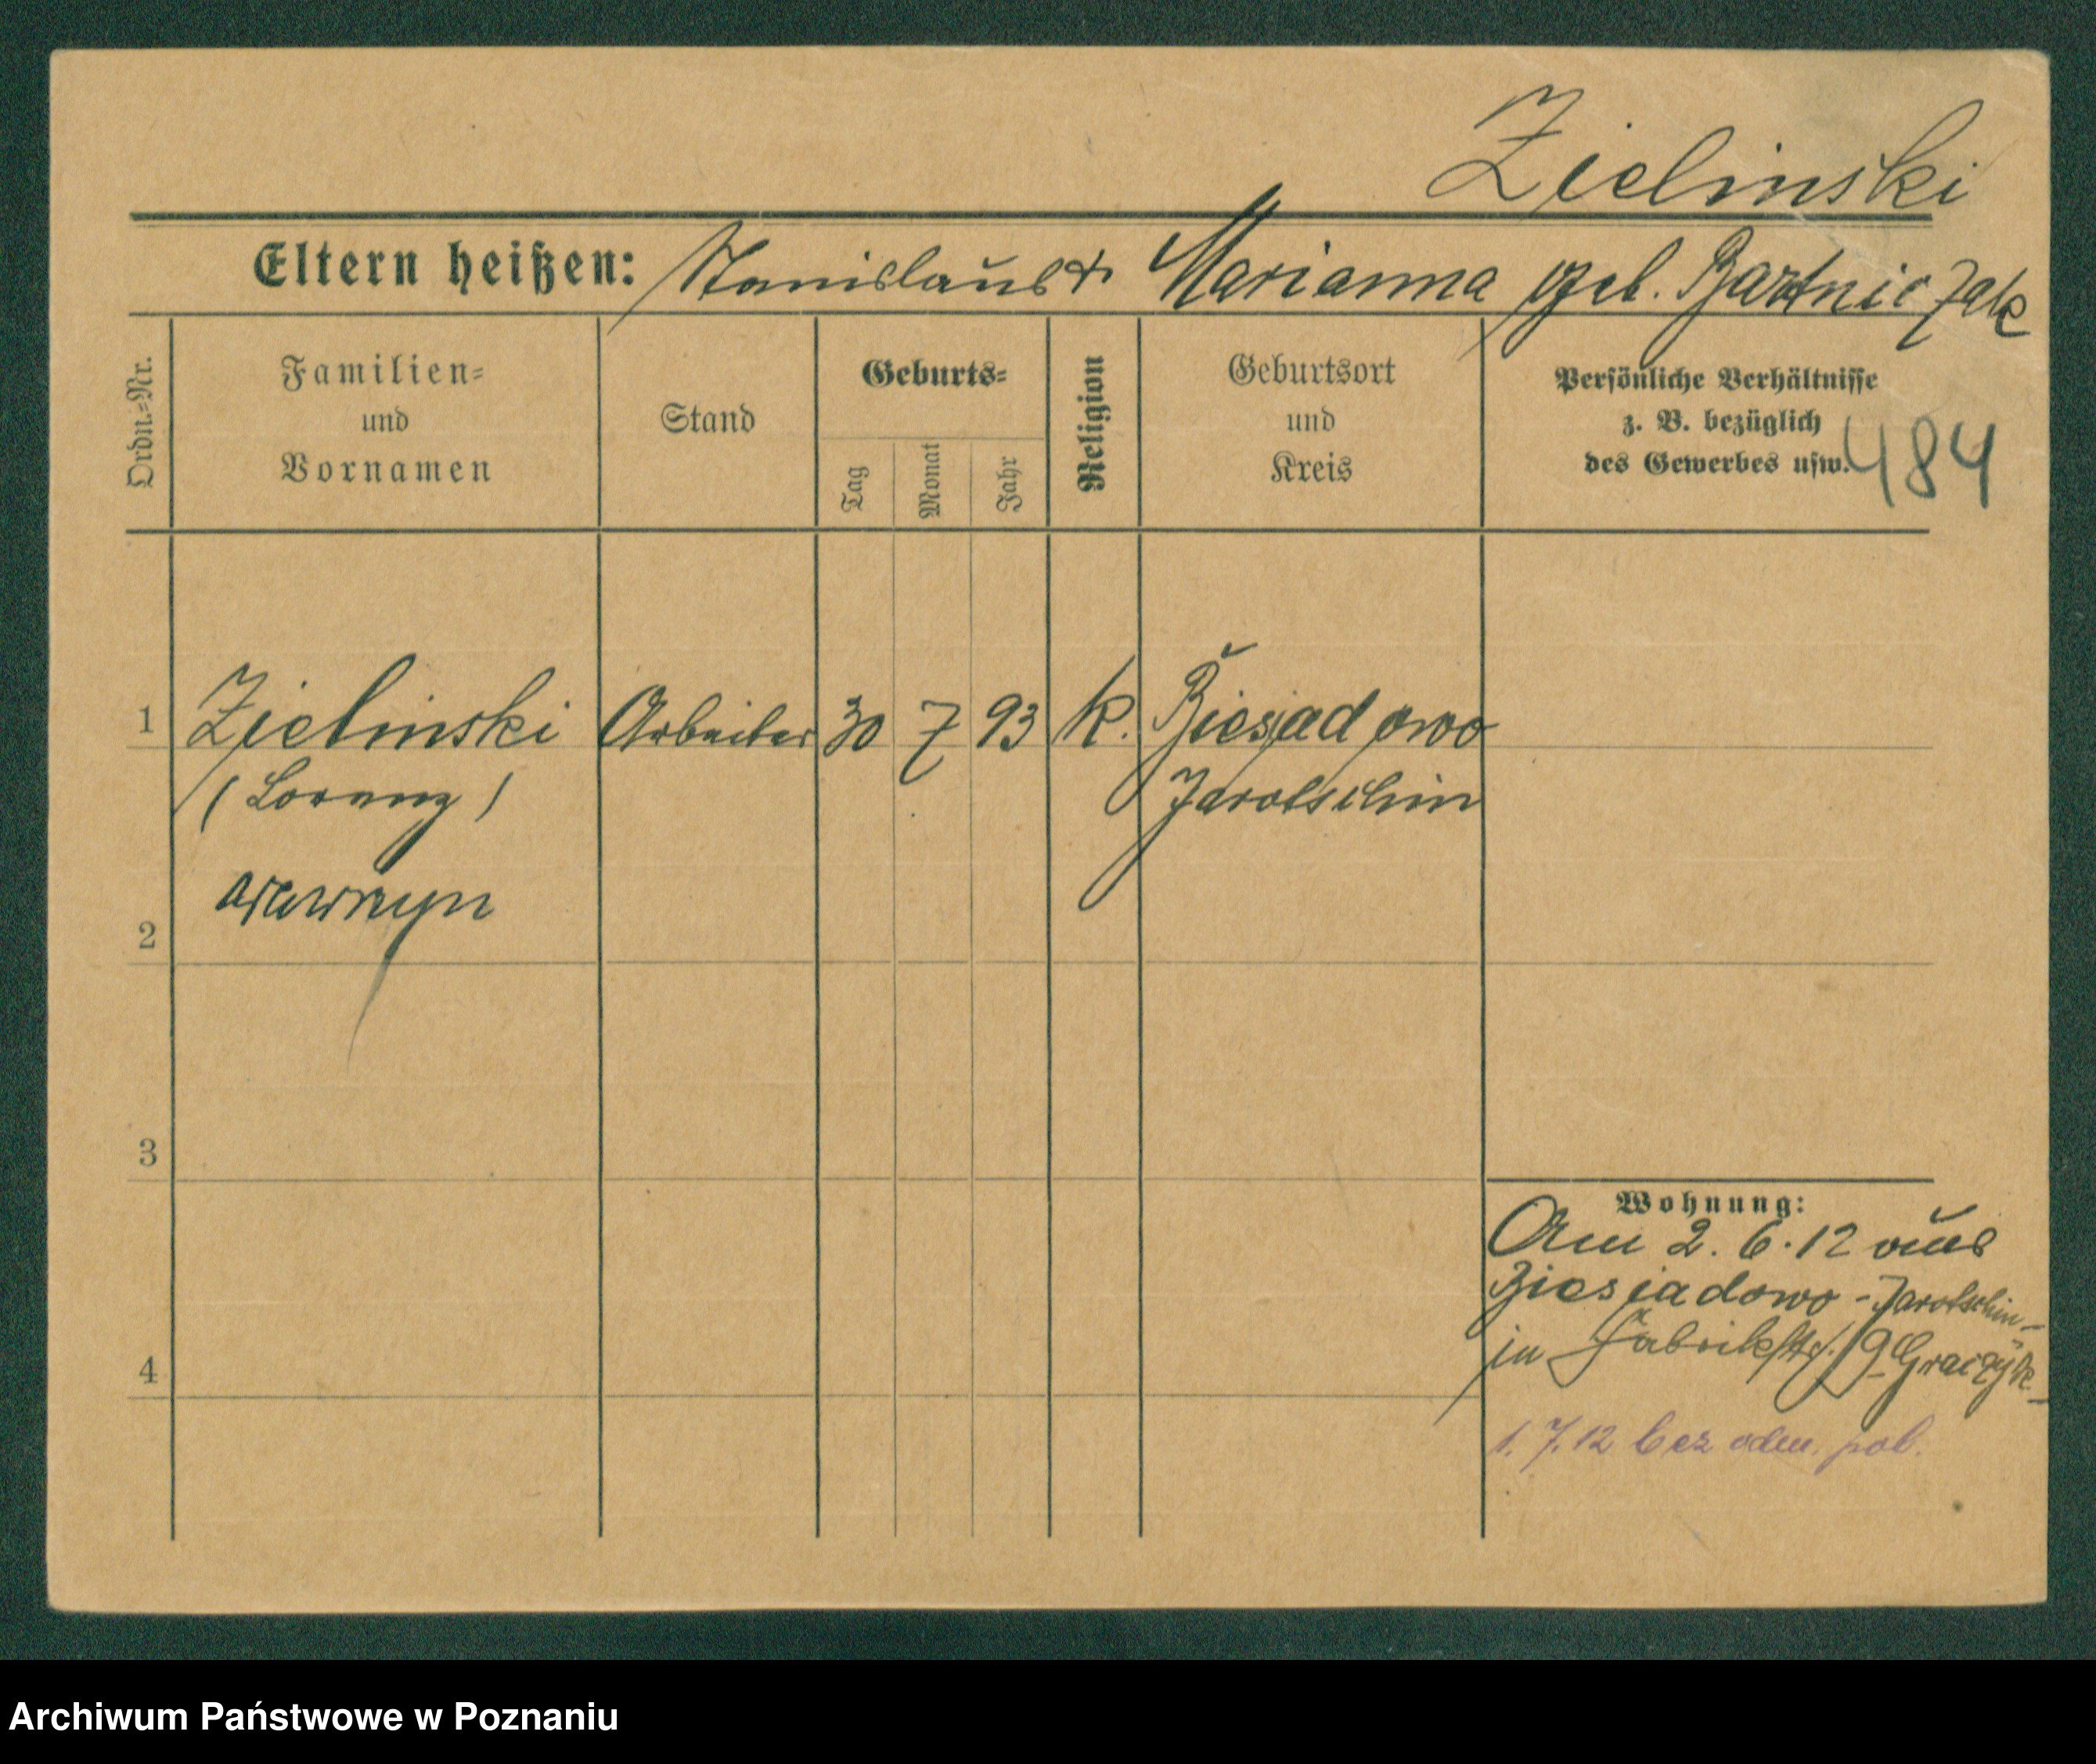 Zielinski
Eltern heißen: Stanislaus & Marianna geb. Bartniczak
Ordn.=Nr.
Familien=
und
Vornamen
Stand
Geburts=
Tag
Monat
Jahr
Religion
Geburtsort
und
Kreis
Persönliche Verhältnisse
z. B. bezüglich
des Gewerbes usw.
484
1 Zielinski Arbeiter 30 7 93 k. Biesiadowo
(Lorenz) Jarotschin
2
3
4
Wohnung:
Am 2. 6. 12 aus
Biesiadowo - Jarotschin -
in Fabrikstr. 19 Graczyk -
1. 7. 12 bez odm. pob.
Archiwum Państwowe w Poznaniu